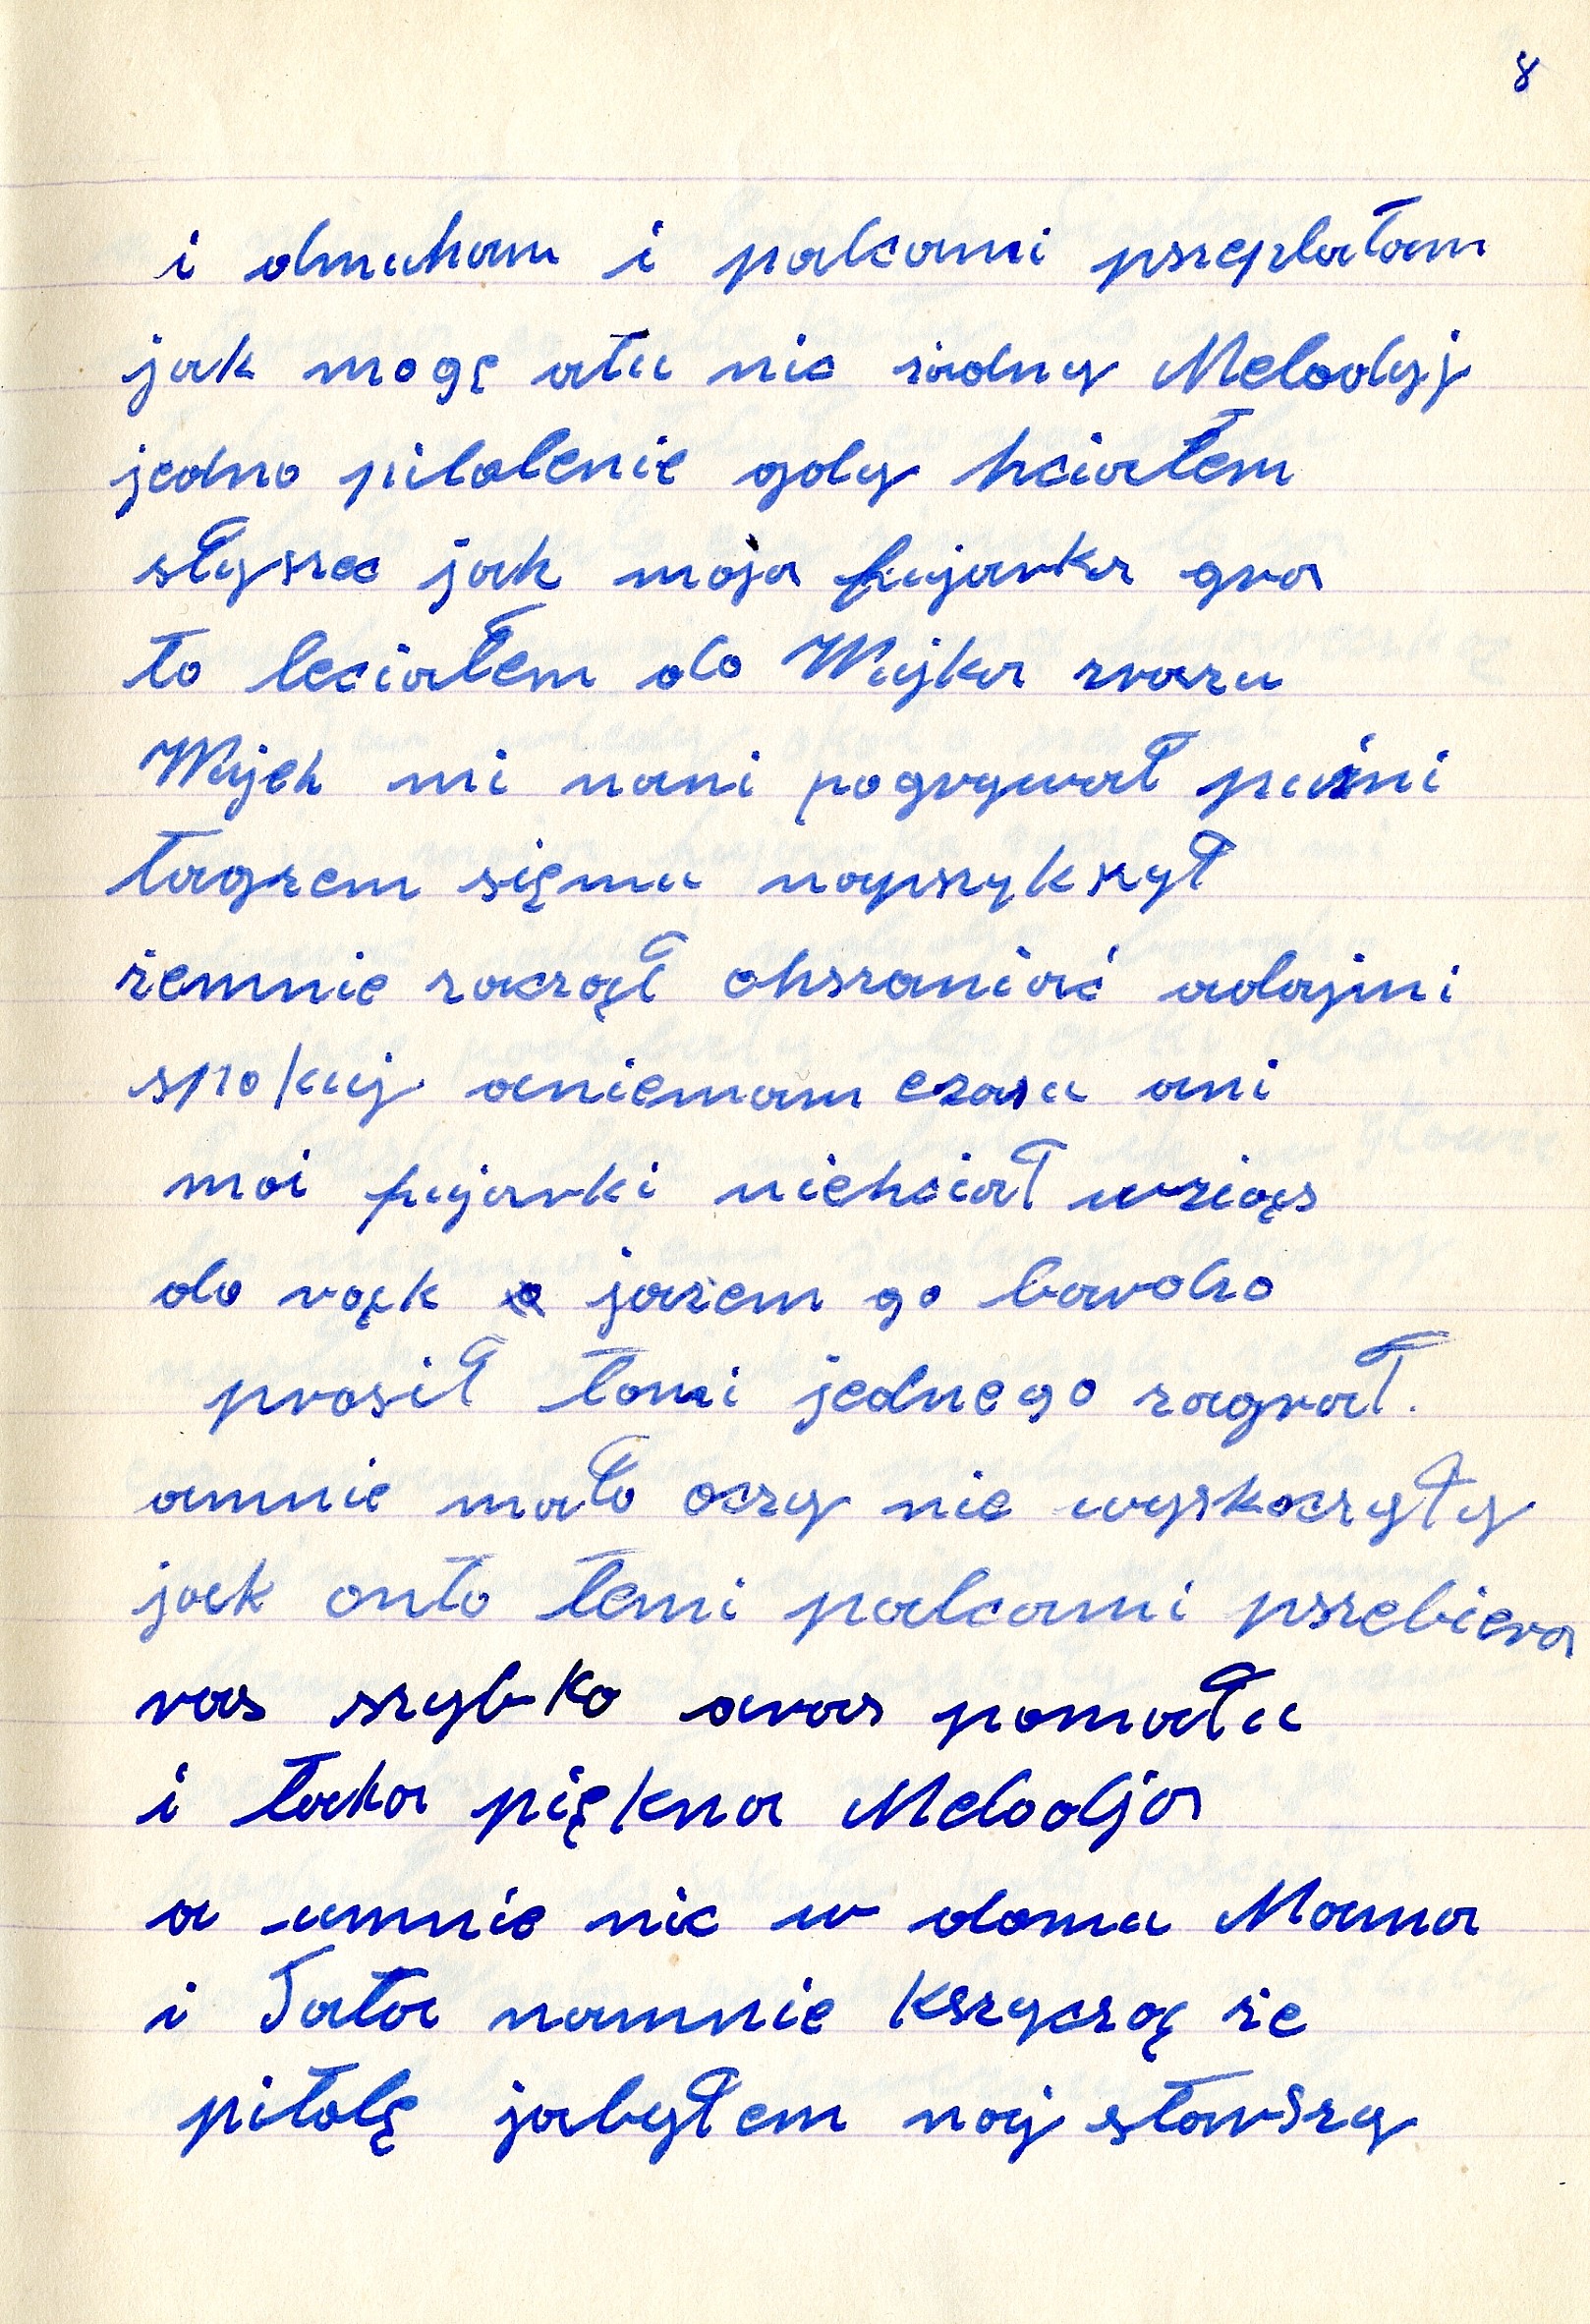 8
i dmuham i palcami pszeplatam
jak mogę atu nic żadny Melodyj
jedno pitolenie gdy hciałem
słyszec jak moja fujarka gra
to leciałem do Wujka zvazu
Wujek mi nani pogrywał puźni
tagżem sięmu napszykszył
żemnie zaczął ohszaniać adajmi
spokuj aniemam czasu ani
moi fujarki niehciał wziąs
do rąk jażem go bardzo
prosił tomi jednego zagrał.
amnie mało oczy nie wyskoczyły
jak onto temi palcami pszebiera
ras szybko aras pomału
i taka piękna Melodja
a umnie nic w domu Mama
i Tata namnie kszyczą że
pitolę jabyłem najstarszy